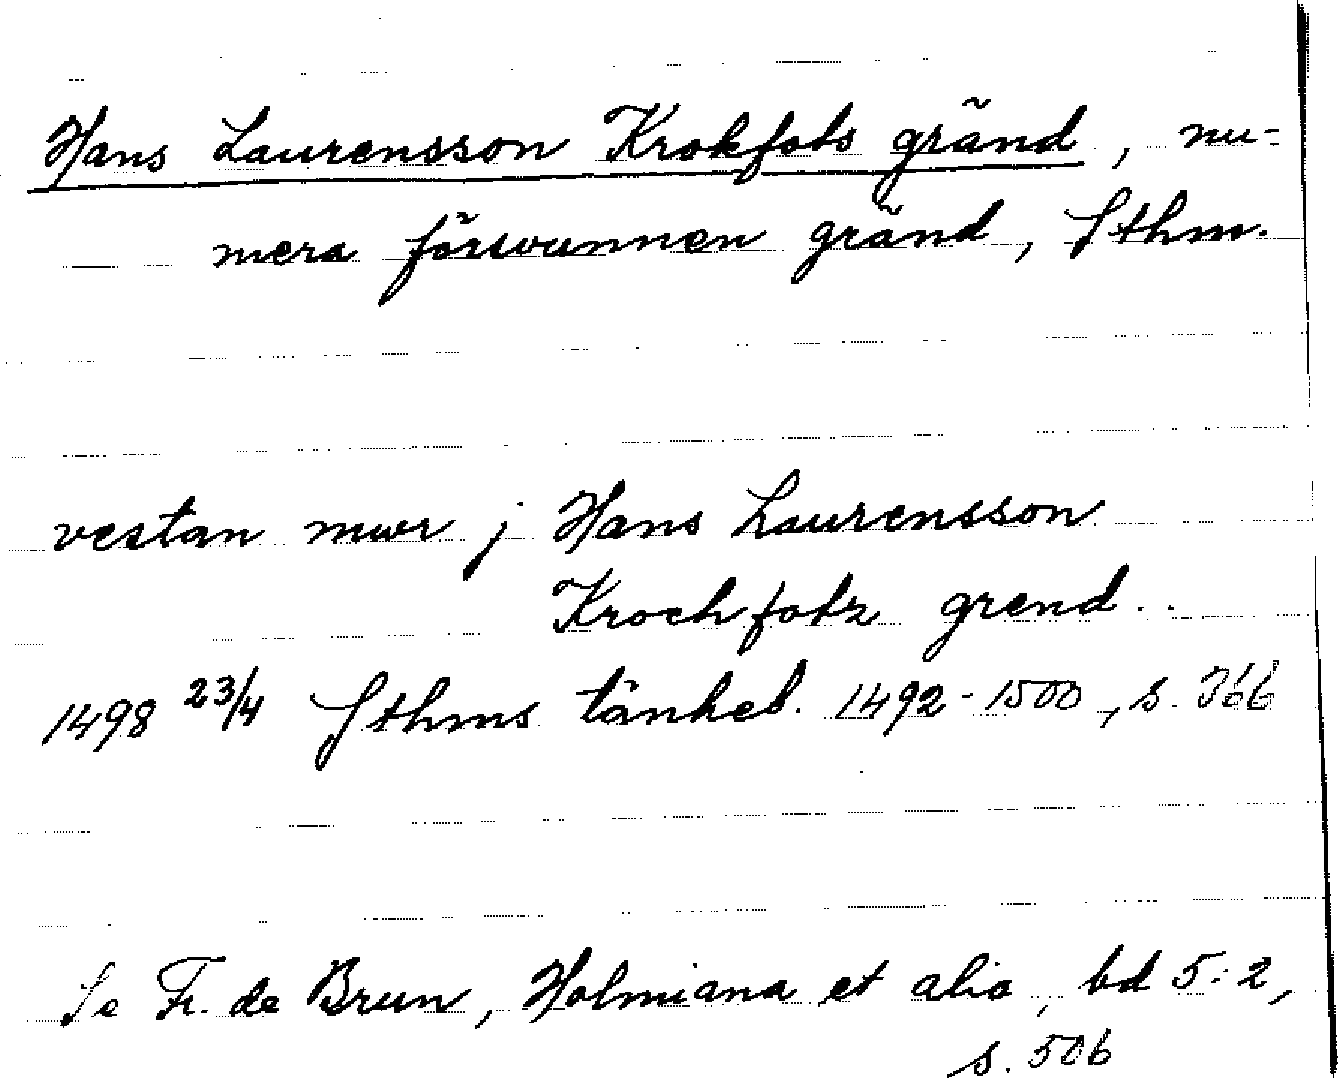 Hans Laurensson Krokfots gränd, nu-
mera försvunnen gränd, Sthm.
vestan mwr j Hans Laurensson
Krochfotz grend..
1498 23/4 Sthms tänkeb. 1492-1500, s. 366
Se Fr. de Brun, Holmiana et alia, bd 5:2,
s. 506